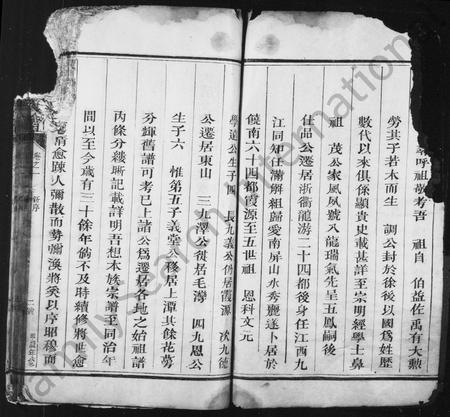 呼祖敬考吾 祖自 伯益佐禹有大勲
勞其子若木而生 調公封於徐後以國爲姓歷
數代以來俱係顯貴史載甚詳至宗明經學上鼻
祖 茂公家風夙號八龍瑞氣先呈五鳳嗣後
仕品公遷居浙衢龍游二十四都後身任江西九
江同知任滿解組歸愛南屏山水秀麗遂卜居於
饒南六十四都霞源至五世祖 恩科文元
學遠公生子四 長九義公仍居霞源 次九德
公遷居東山 三九澤公徙居毛灣 四九恩公
生子六 惟第五子義堂公移居上潭其餘花萼
分輝舊譜可考已上諸公為遷居各地之始祖譜
丙條分縷晰記載詳明吾想本族宗譜至同治年
間以至今歲有三十餘年倘不及時續修將世愈
愈疎人彌散而勢彌渙將奚以序昭穆而
卷之一
新序
family search international